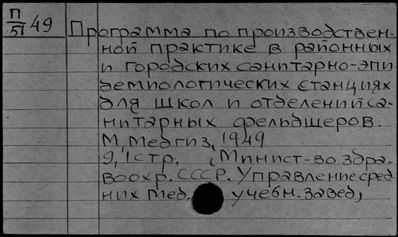 П/51 49 Программа по производствен-
ной практике в районных
и городских санитарно-эпи
демиологических станциях
для школ и отделений са-
нитарных фельдшеров.
М, Медгиз, 1949
9, 1 стр, (Минист-во здра-
воохр. СССР. Управление сред
них мед. учебн. завед,